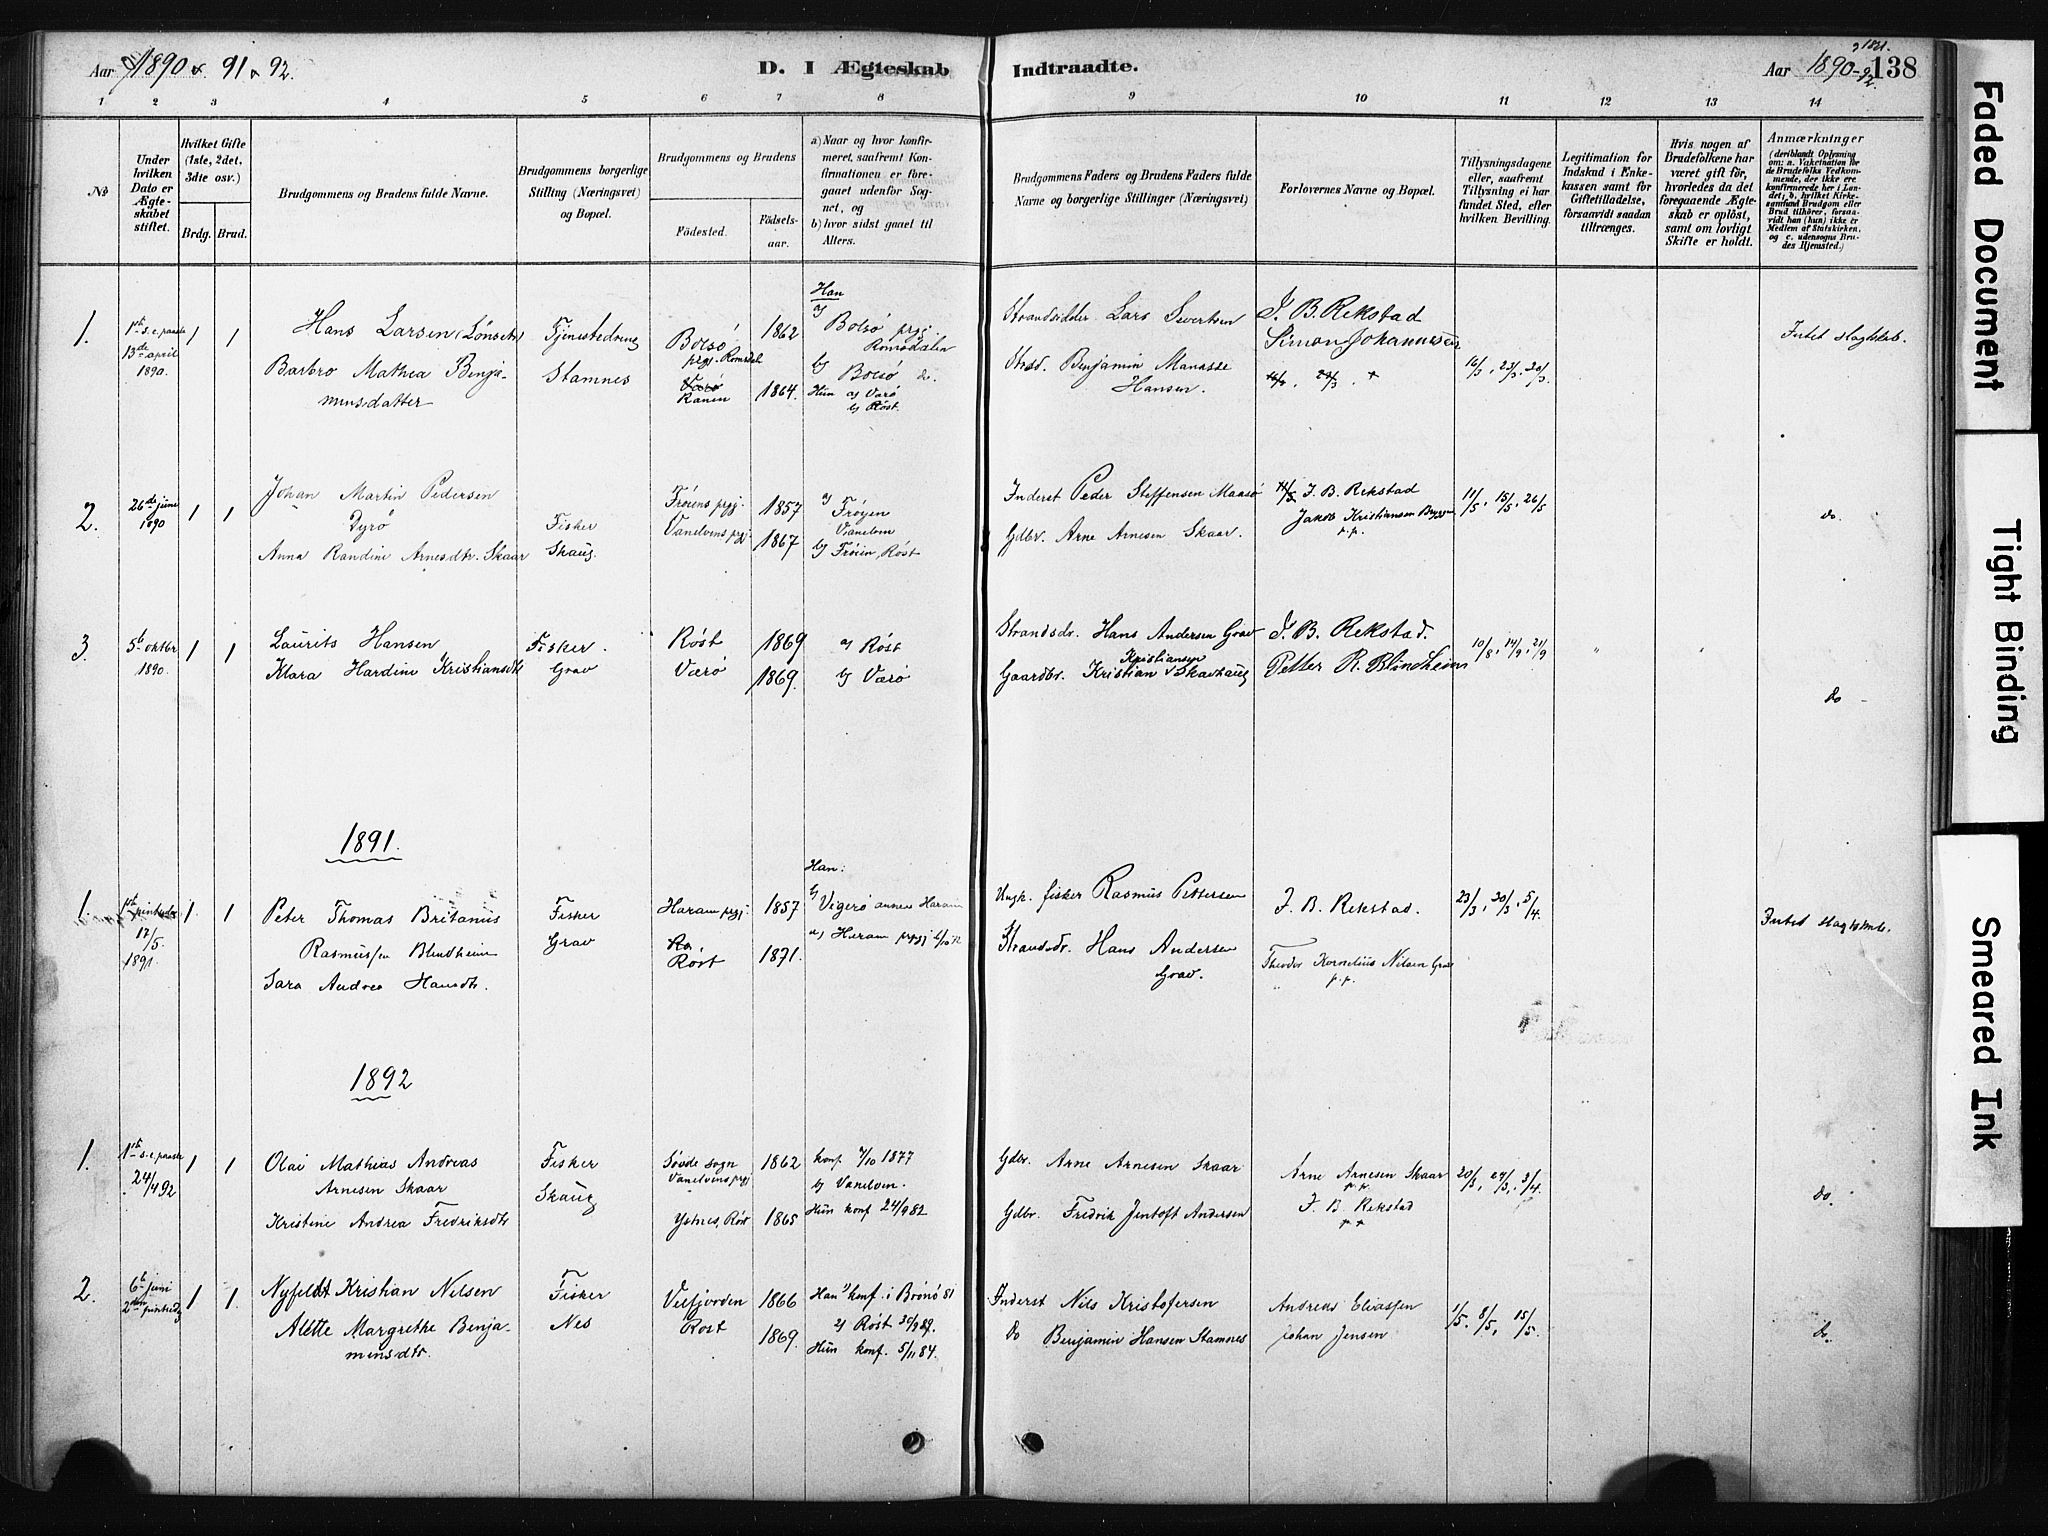 Aar 1890 & 91 & 92.
D. I Ægteskab Indtraadte.
Aar 1890-92. 138
1 2 3 4 5 6 7 8 9 10 11 12 13 14
No
Under hvilken Dato er Ægteskabet stiftet.
Hvilket Gifte (1ste, 2det, 3die osv.)
Brdg. Brud.
Brudgommens og Brudens fulde Navne.
Brudgommens borgerlige Stilling (Næringsvei) og Bopæl.
Brudgommens og Brudens
Födested. Födselsaar.
a) Naar og hvor konfirmeret, saafremt Konfirmationen er foregaaet udenför Sognet, og
b) hvor sidst gaaet til Alters.
Brudgommens Faders og Brudens Faders fulde Navne og borgerlige Stillinger (Næringsvei)
Forlovernes Navne og Bopæl.
Tillysningsdagene eller, saafremt Tillysning ei har fundet Sted, efter hvilken Bevilling.
Legitimation for Indskud i Enkekassen samt for Giftetilladelse, forsaavidt saadan tiltrænges.
Hvis nogen af Brudefolkene har været gift för, hvorledes da det foregaaende Ægteskab er oplöst, samt om lovligt Skifte er holdt.
Anmærkninger
(deriblandt Oplysning om: a. Vakcination for de Brudefolks Vedkommende, der ikke ere konfirmerede her i Landet, b. hvilket Kirkesamfund Brudgom eller Brud tilhörer, forsaavidt han (hun) ikke er Medlem af Statskirken, og c. udensogns Brudes Hjemsted.)
1. 1ste s. e. paaske 13de april 1890. 1 1
Hans Larsen (Lönseth)
Barbro Mathea Benjaminsdatter
Tjenestedreng Stamnes
Bolsö prgj. Romsdal 1862
Ranen 1864.
Han a) Bolsö prgj. Romsdalen
b) Bolsö do.
Hun a) Værö
b) Röst.
Strandsidder Lars Sivertsen
Strsd. Benjamin Manasse Hansen.
J. B. Rekstad
Simon Johannessen
16/3, 23/3, 30/3.
Intet slagtskab.
2. 26de juni 1890 1 1
Johan Martin Pedersen Dyrö
Anna Randine Arnesdtr. Skaar
Fisker Skaug.
Fröiens prgj. 1857
Vanelvens prgj 1867
a) Fröyen Vanelven
b) Fröien, Röst
Inderst Peder Steffensen Maasö
Gdbr. Arne Arnesen Skaar.
J. B. Rekstad
Jakob Kristiansen
p.p.
11/5, 15/5, 26/5
do.
3. 5te oktbr 1890. 1 1
Laurits Hansen
Klara Hardine Kristiansdtr
Fisker. Grav
Röst 1869
Værö 1869.
a) Röst
b) Værö
Strandsdr. Hans Andersen Grav
Gaardbr. Kristian Kristiansen Skarhaug
J. B. Rekstad.
Petter R. Blindheim
10/8, 14/9, 21/9
" "
do -
1891.
1. 1ste pintsedag 17/5. 1891. 1. 1
Peter Thomas Britanus Rasmussen Blindheim
Sara Andrea Hansdtr.
Fisker Grav
Haram prgj. 1857
Röst 1871.
Han:
b) Vigerö annex Haram
a) Haram prgj
Ungk. fisker Rasmus Pettersen
Strandsdr. Hans Andersen Grav.
J. B. Rekstad.
Theodor Kornelius Nilsen Grav
p.p.
23/3, 30/3, 5/4.
Intet slagtskab.
1892
1. 1ste s. e. paaske 24/4 92 1 1
Olai Mathias Andreas Arnesen Skaar
Kristine Andrea Fredriksdtr
Fisker Skaug
Sövde sogn Vanelvens prgj 1862
Ystnes, Röst 1865
konf 7/10 1877
b) Vanelven.
Hun konf 24/9 82
Gdbr. Arne Arnesen Skaar
Gdbr. Fredrik Jentoft Andersen
Arne Arnesen Skaar
p.p.
J. B. Rekstad
20/3, 27/3, 3/4.
do.
2. 6te juni 2den pintsedg 1 1.
Nyfeldt Kristian Nilsen
Alette Margrethe Benjaminsdtr.
Fisker Nes
Velfjorden 1866
Röst 1869.
Han konf. i Brönö 81
a) Röst 30/9 89.
Hun konf. 5/11 84.
Inderst Nils Kristofersen
do Benjamin Hansen Stamnes
Andreas Eliassen
Johan Jensen
1/5. 8/5, 15/5.
do.
Faded Document
Tight Binding
Smeared Ink